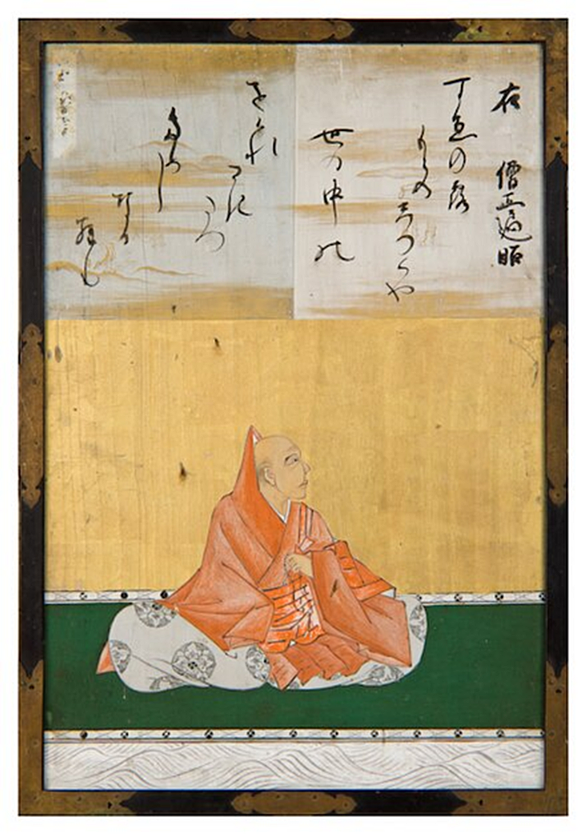 右 僧正遍昭
すゑの露
もとのしつくや
世の中の
をくれ
さき
たつ
ためし
なる
らむ